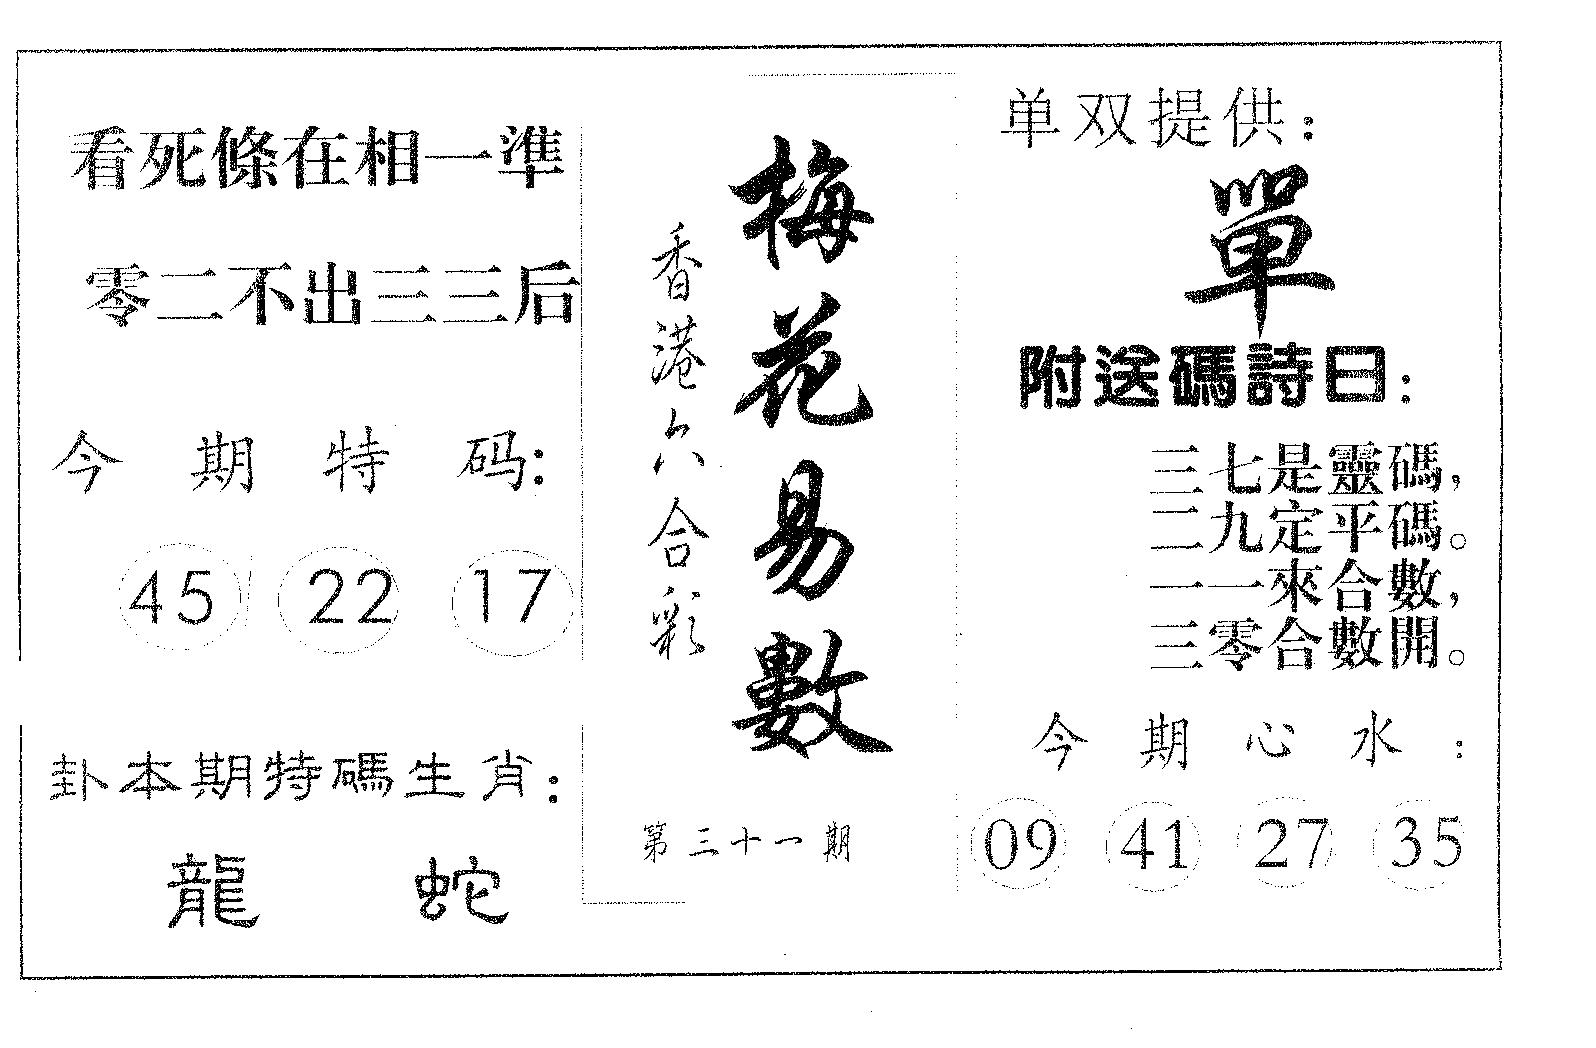 看死條在相一準
零二不出三三后
今期特码:
45 22 17
卦本期特碼生肖:
龍 蛇
梅花易數
香港六合彩
第三十一期
单双提供:
單
附送碼詩曰:
三七是靈碼,
二九定平碼。
一一來合數,
三零合數開。
今期心水:
09 41 27 35